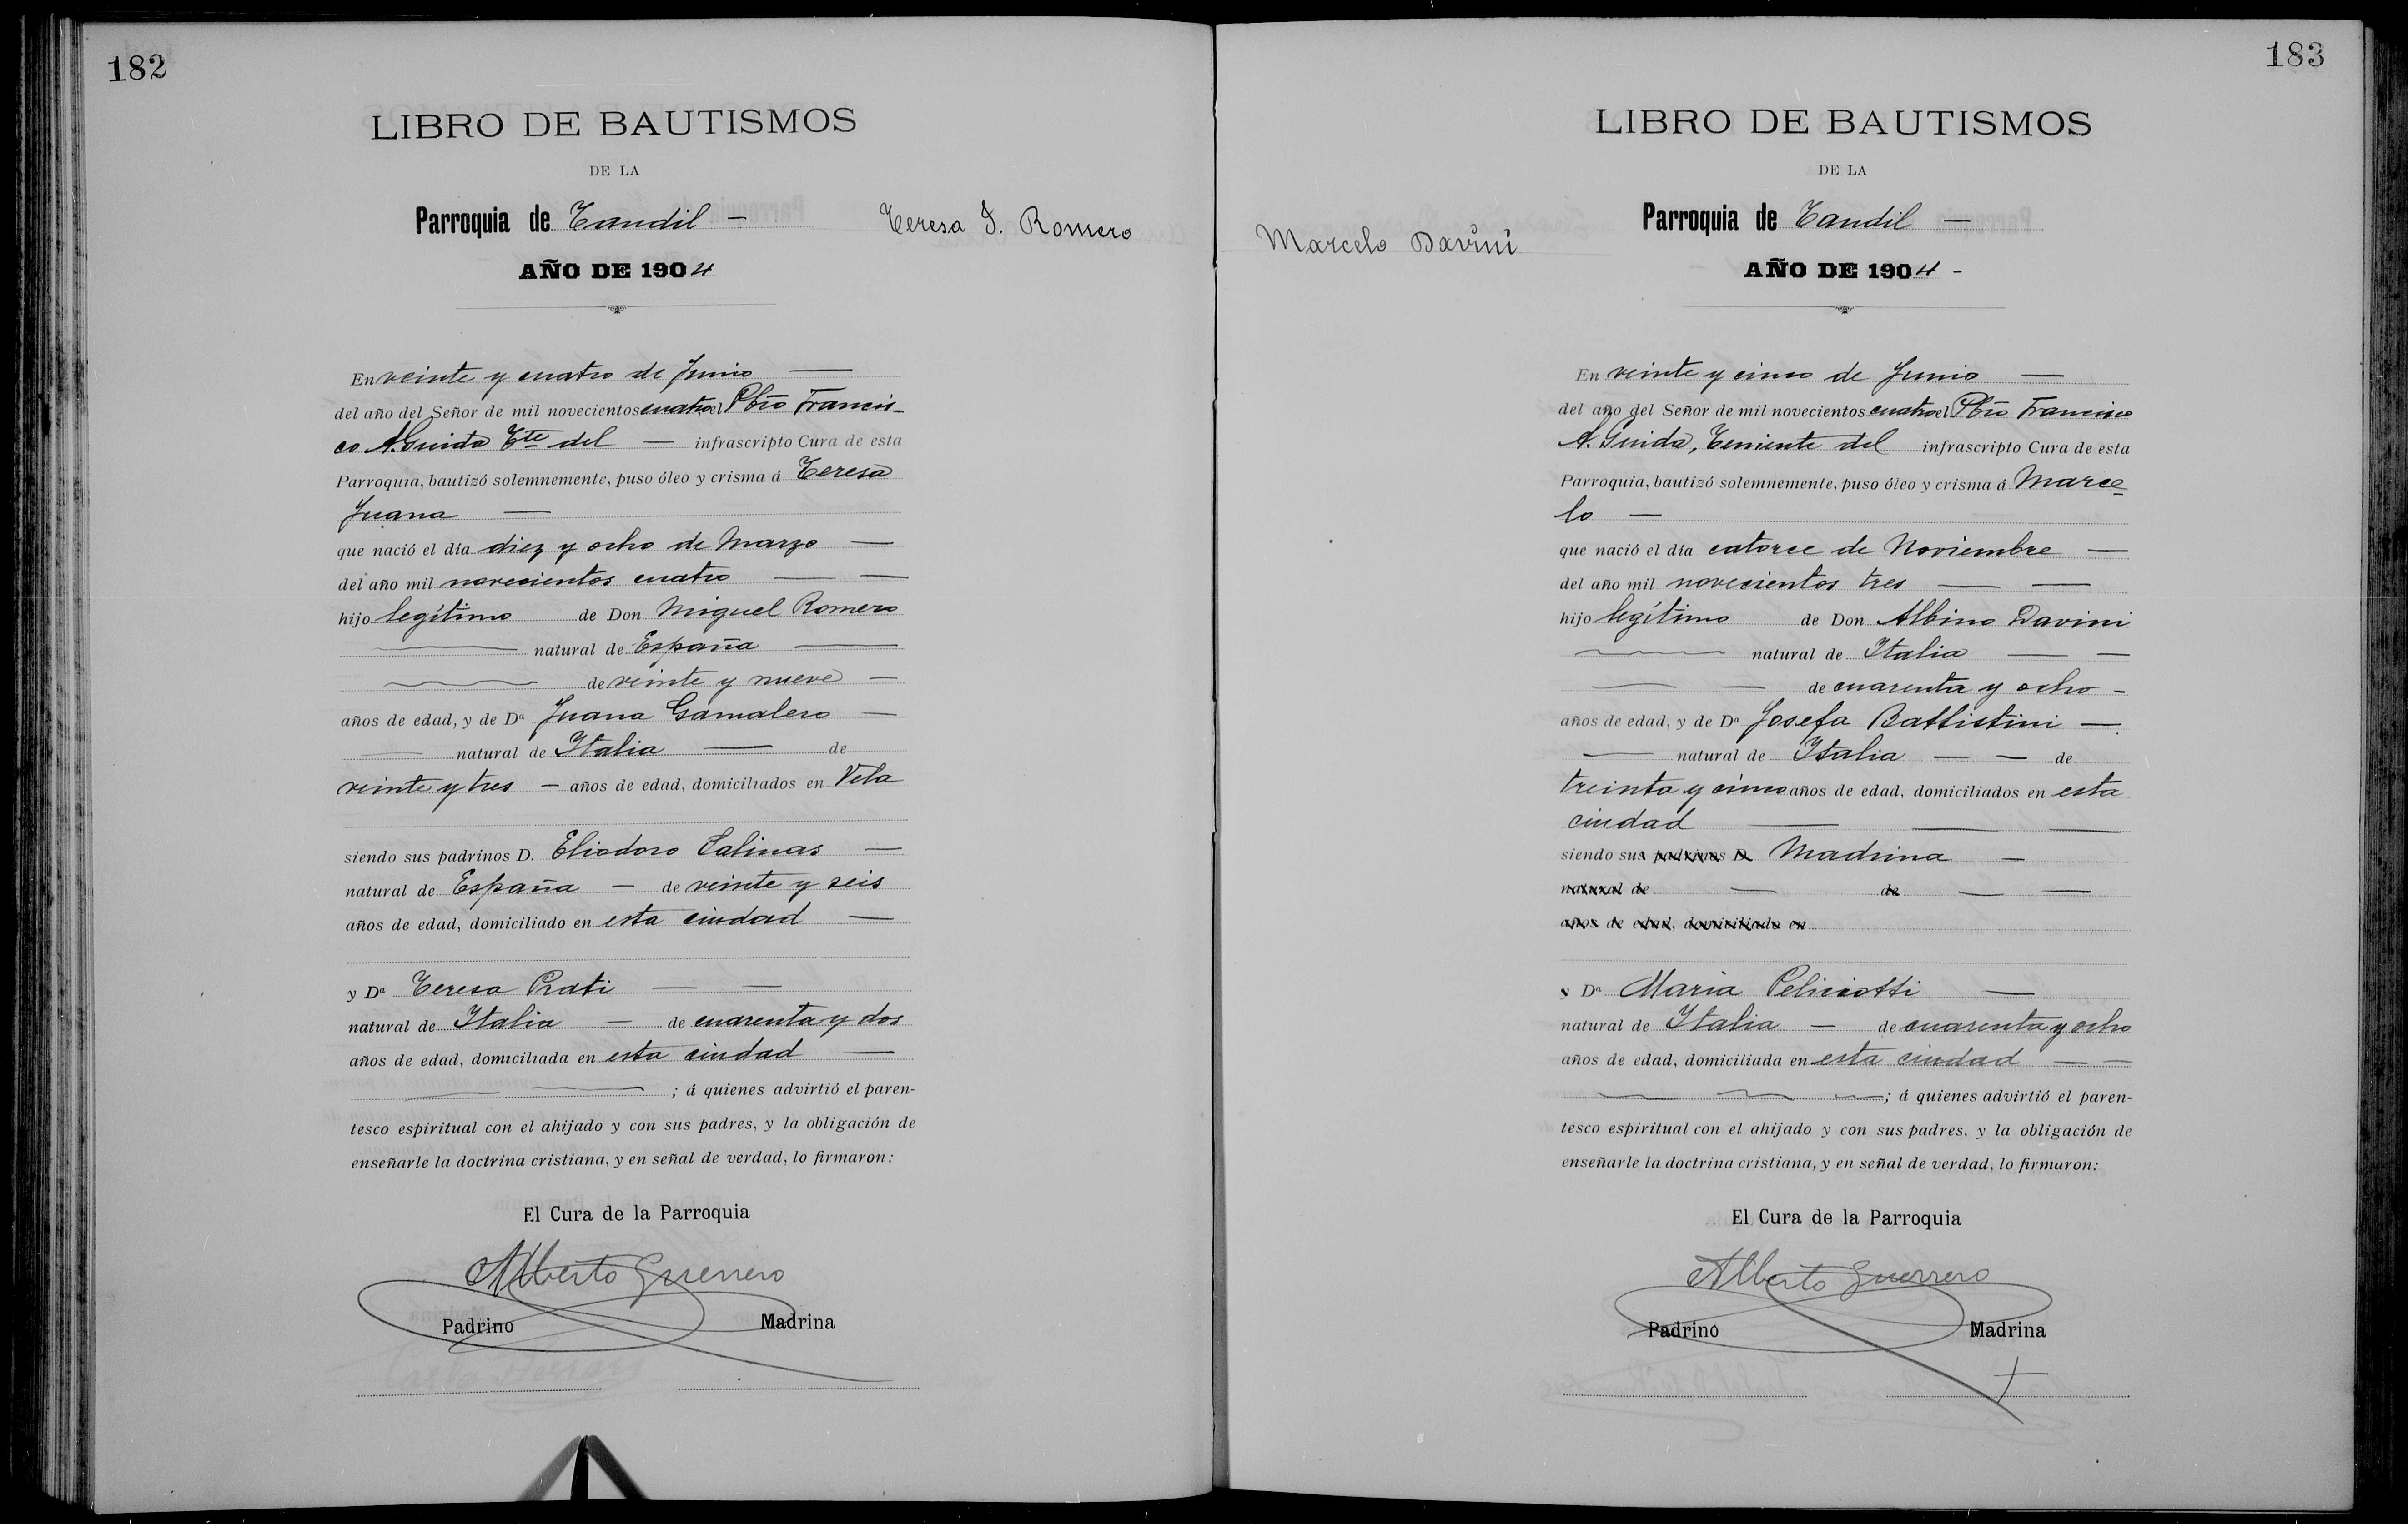 182
LIBRO DE BAUTISMOS
DE LA
Parroquia de Tandil —
Teresa J. Romero
AÑO DE 1904
En veinte y cuatro de Junio —
del año del Señor de mil novecientos cuatro el Pbro Francis-
co A. Guida Tte del — infrascripto Cura de esta
Parroquia, bautizó solemnemente, puso óleo y crisma á Teresa
Juana —
que nació el día diez y ocho de Marzo —
del año mil novecientos cuatro — —
hijo legítimo de Don Miguel Romero
— natural de España —
— de veinte y nueve —
años de edad, y de Da Juana Gamalero —
— natural de Italia — de
veinte y tres — años de edad, domiciliados en Vela
siendo sus padrinos D. Eliodoro Salinas —
natural de España — de veinte y seis
años de edad, domiciliado en esta ciudad —
y Da Teresa Prati — —
natural de Italia — de cuarenta y dos
años de edad, domiciliada en esta ciudad —
— — ; á quienes advirtió el paren-
tesco espiritual con el ahijado y con sus padres, y la obligación de
enseñarle la doctrina cristiana, y en señal de verdad, lo firmaron:
El Cura de la Parroquia
Alberto Guerrero
Padrino Madrina
183
LIBRO DE BAUTISMOS
DE LA
Marcelo Davini
Parroquia de Tandil —
AÑO DE 1904 -
En veinte y cinco de Junio —
del año del Señor de mil novecientos cuatro el Pbro Francisco
A. Guida, Teniente del infrascripto Cura de esta
Parroquia, bautizó solemnemente, puso óleo y crisma á Marce-
lo —
que nació el día catorce de Noviembre —
del año mil novecientos tres — —
hijo legítimo de Don Albino Davini
— natural de Italia — —
— — de cuarenta y ocho -
años de edad, y de Da Josefa Battistini —
— natural de Italia — — de
treinta y cinco años de edad, domiciliados en esta
ciudad — — —
siendo sus padrinos D. Madrina —
natural de — de — —
años de edad, domiciliado en
y Da Maria Peliciotti —
natural de Italia — de cuarenta y ocho
años de edad, domiciliada en esta ciudad — —
— — —; á quienes advirtió el paren-
tesco espiritual con el ahijado y con sus padres, y la obligación de
enseñarle la doctrina cristiana, y en señal de verdad, lo firmaron:
El Cura de la Parroquia
Alberto Guerrero
Padrino Madrina
+